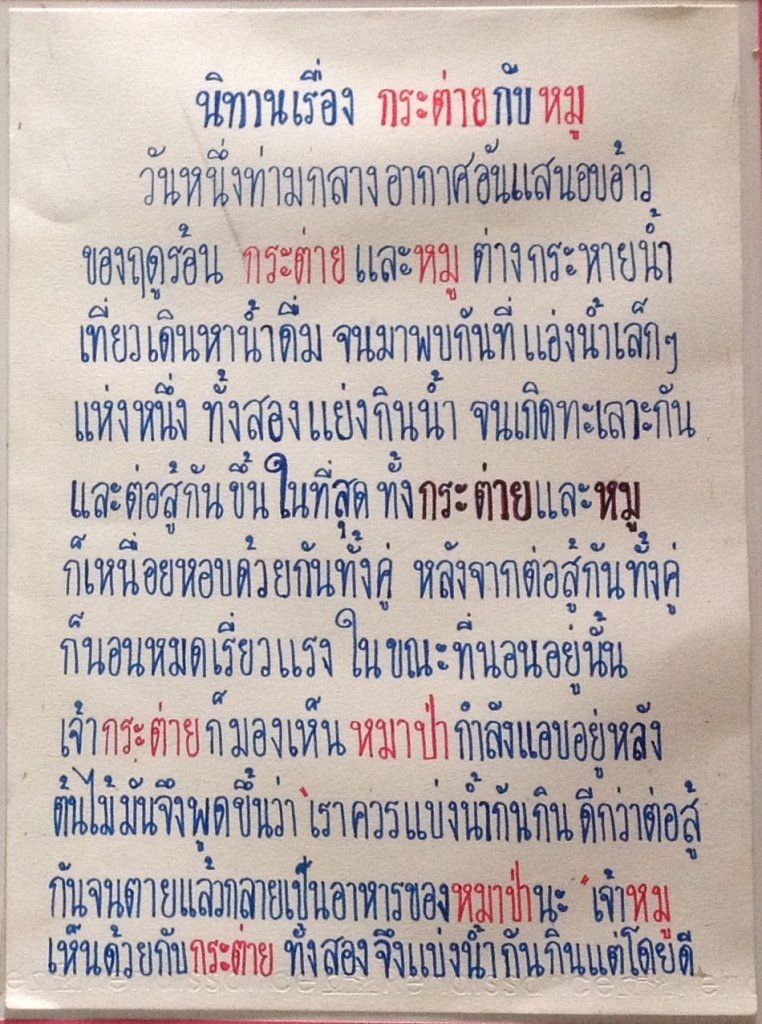 นิทานเรื่อง กระต่ายกับหมู
วันหนึ่งท่ามกลางอากาศอันแสนอบอ้าว
ของฤดูร้อน กระต่ายและหมู ต่างกระหายน้ำ
เที่ยวเดินหาน้ำดื่ม จนมาพบกันที่แอ่งน้ำเล็กๆ
แห่งหนึ่ง ทั้งสองแย่งกินน้ำ จนเกิดทะเลาะกัน
และต่อสู้กันขึ้น ในที่สุด ทั้งกระต่ายและหมู
ก็เหนื่อยหอบด้วยกันทั้งคู่ หลังจากต่อสู้กันทั้งคู่
ก็นอนหมดเรี่ยวแรง ในขณะที่นอนอยู่นั้น
เจ้ากระต่ายก็มองเห็น หมาป่า กำลังแอบอยู่หลัง
ต้นไม้มันจึงพูดขึ้นว่า 'เราควรแบ่งน้ำกันกิน ดีกว่าต่อสู้
กันจนตายแล้วกลายเป็นอาหารของหมาป่านะ 'เจ้าหมู
เห็นด้วยกับกระต่าย ทั้งสองจึงแบ่งน้ำกันกินแต่โดยดี